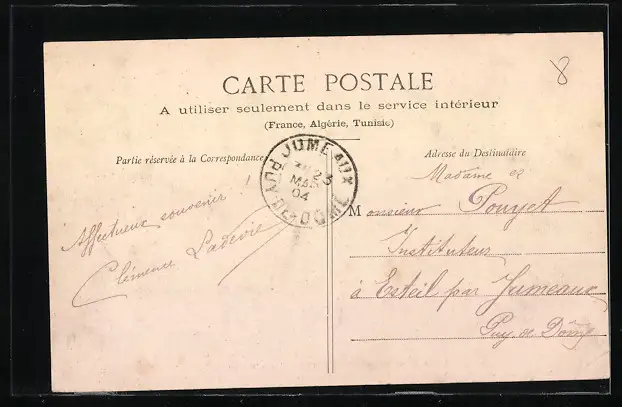 8
CARTE POSTALE
A utiliser seulement dans le service intérieur
(France, Algérie, Tunisie)
Partie réservée à la Correspondance
Adresse du Destinataire
JUMEAUX
23
MARS
04
PUY-DE-DOME
Affectueux souvenir !
Clémence Ladevie
Madame et
Monsieur Pouyet
Instituteur
à Esteil par Jumeaux
Puy de Dôme